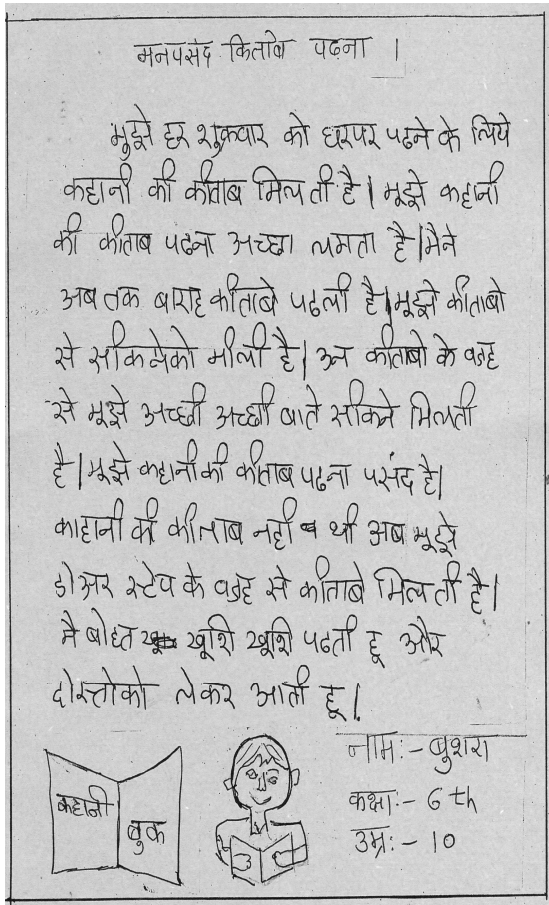 मनपसंद किताबे पढना ।
मुझे हर शुक्रवार को घरपर पढने के लिये
कहानी की कीताब मिलती है। मुझे कहानी
की कीताब पढना अच्छा लगता है। मैने
अब तक बाराह कीताबे पढली है। मुझे कीताबो
से सीकनेको मीली है। उन कीताबो के वजह
से मूझे अच्छी अच्छी बाते सीकने मिलती
है। मूझे कहानी की कीताब पढना पसंद है।
काहानी की कीताब नही थी अब मूझे
डोअर स्टेप के वजह से कीताबे मिलती है।
मै बोहत खूशि खूशि पढती हू और
दोस्तोको लेकर आती हू।
नाम :- बुशरा
कक्षा :- 6 th
उम्र :- 10
कहानी
बुक